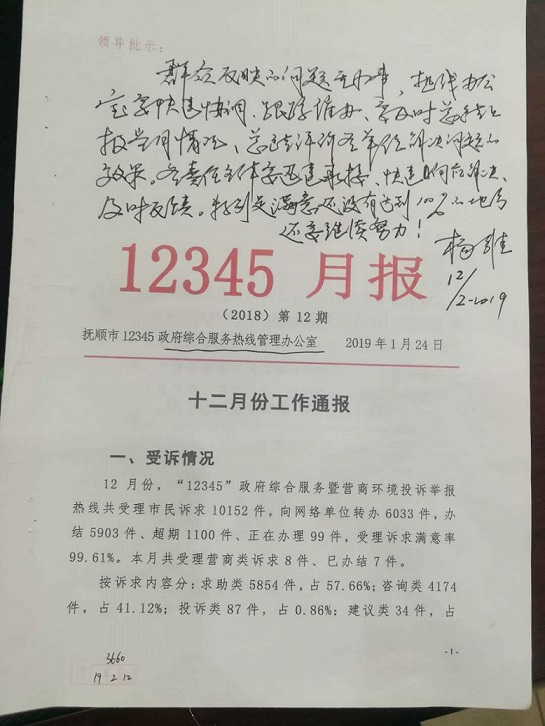 领导批示：
群众反映的问题无小事，热线办公
室要快速协调、跟踪催办、要及时总结上
报共同情况，总结评价各单位解决问题的
效果。各责任主体要迅速承接、快速响应解决、
及时反馈。特别是满意还没有达到100%的地方
还要继续努力！
12/2-2019
12345 月报
（2018）第 12 期
抚顺市 12345 政府综合服务热线管理办公室 2019 年 1 月 24 日
十二月份工作通报
一、受诉情况
12 月份，“12345”政府综合服务暨营商环境投诉举报
热线共受理市民诉求 10152 件，向网络单位转办 6033 件，办
结 5903 件、超期 1100 件、正在办理 99 件，受理诉求满意率
99.61%。本月共受理营商类诉求 8 件、已办结 7 件。
按诉求内容分：求助类 5854 件，占 57.66%；咨询类 4174
件，占 41.12%；投诉类 87 件，占 0.86%；建议类 34 件，占
3660
19 2 12
-1-